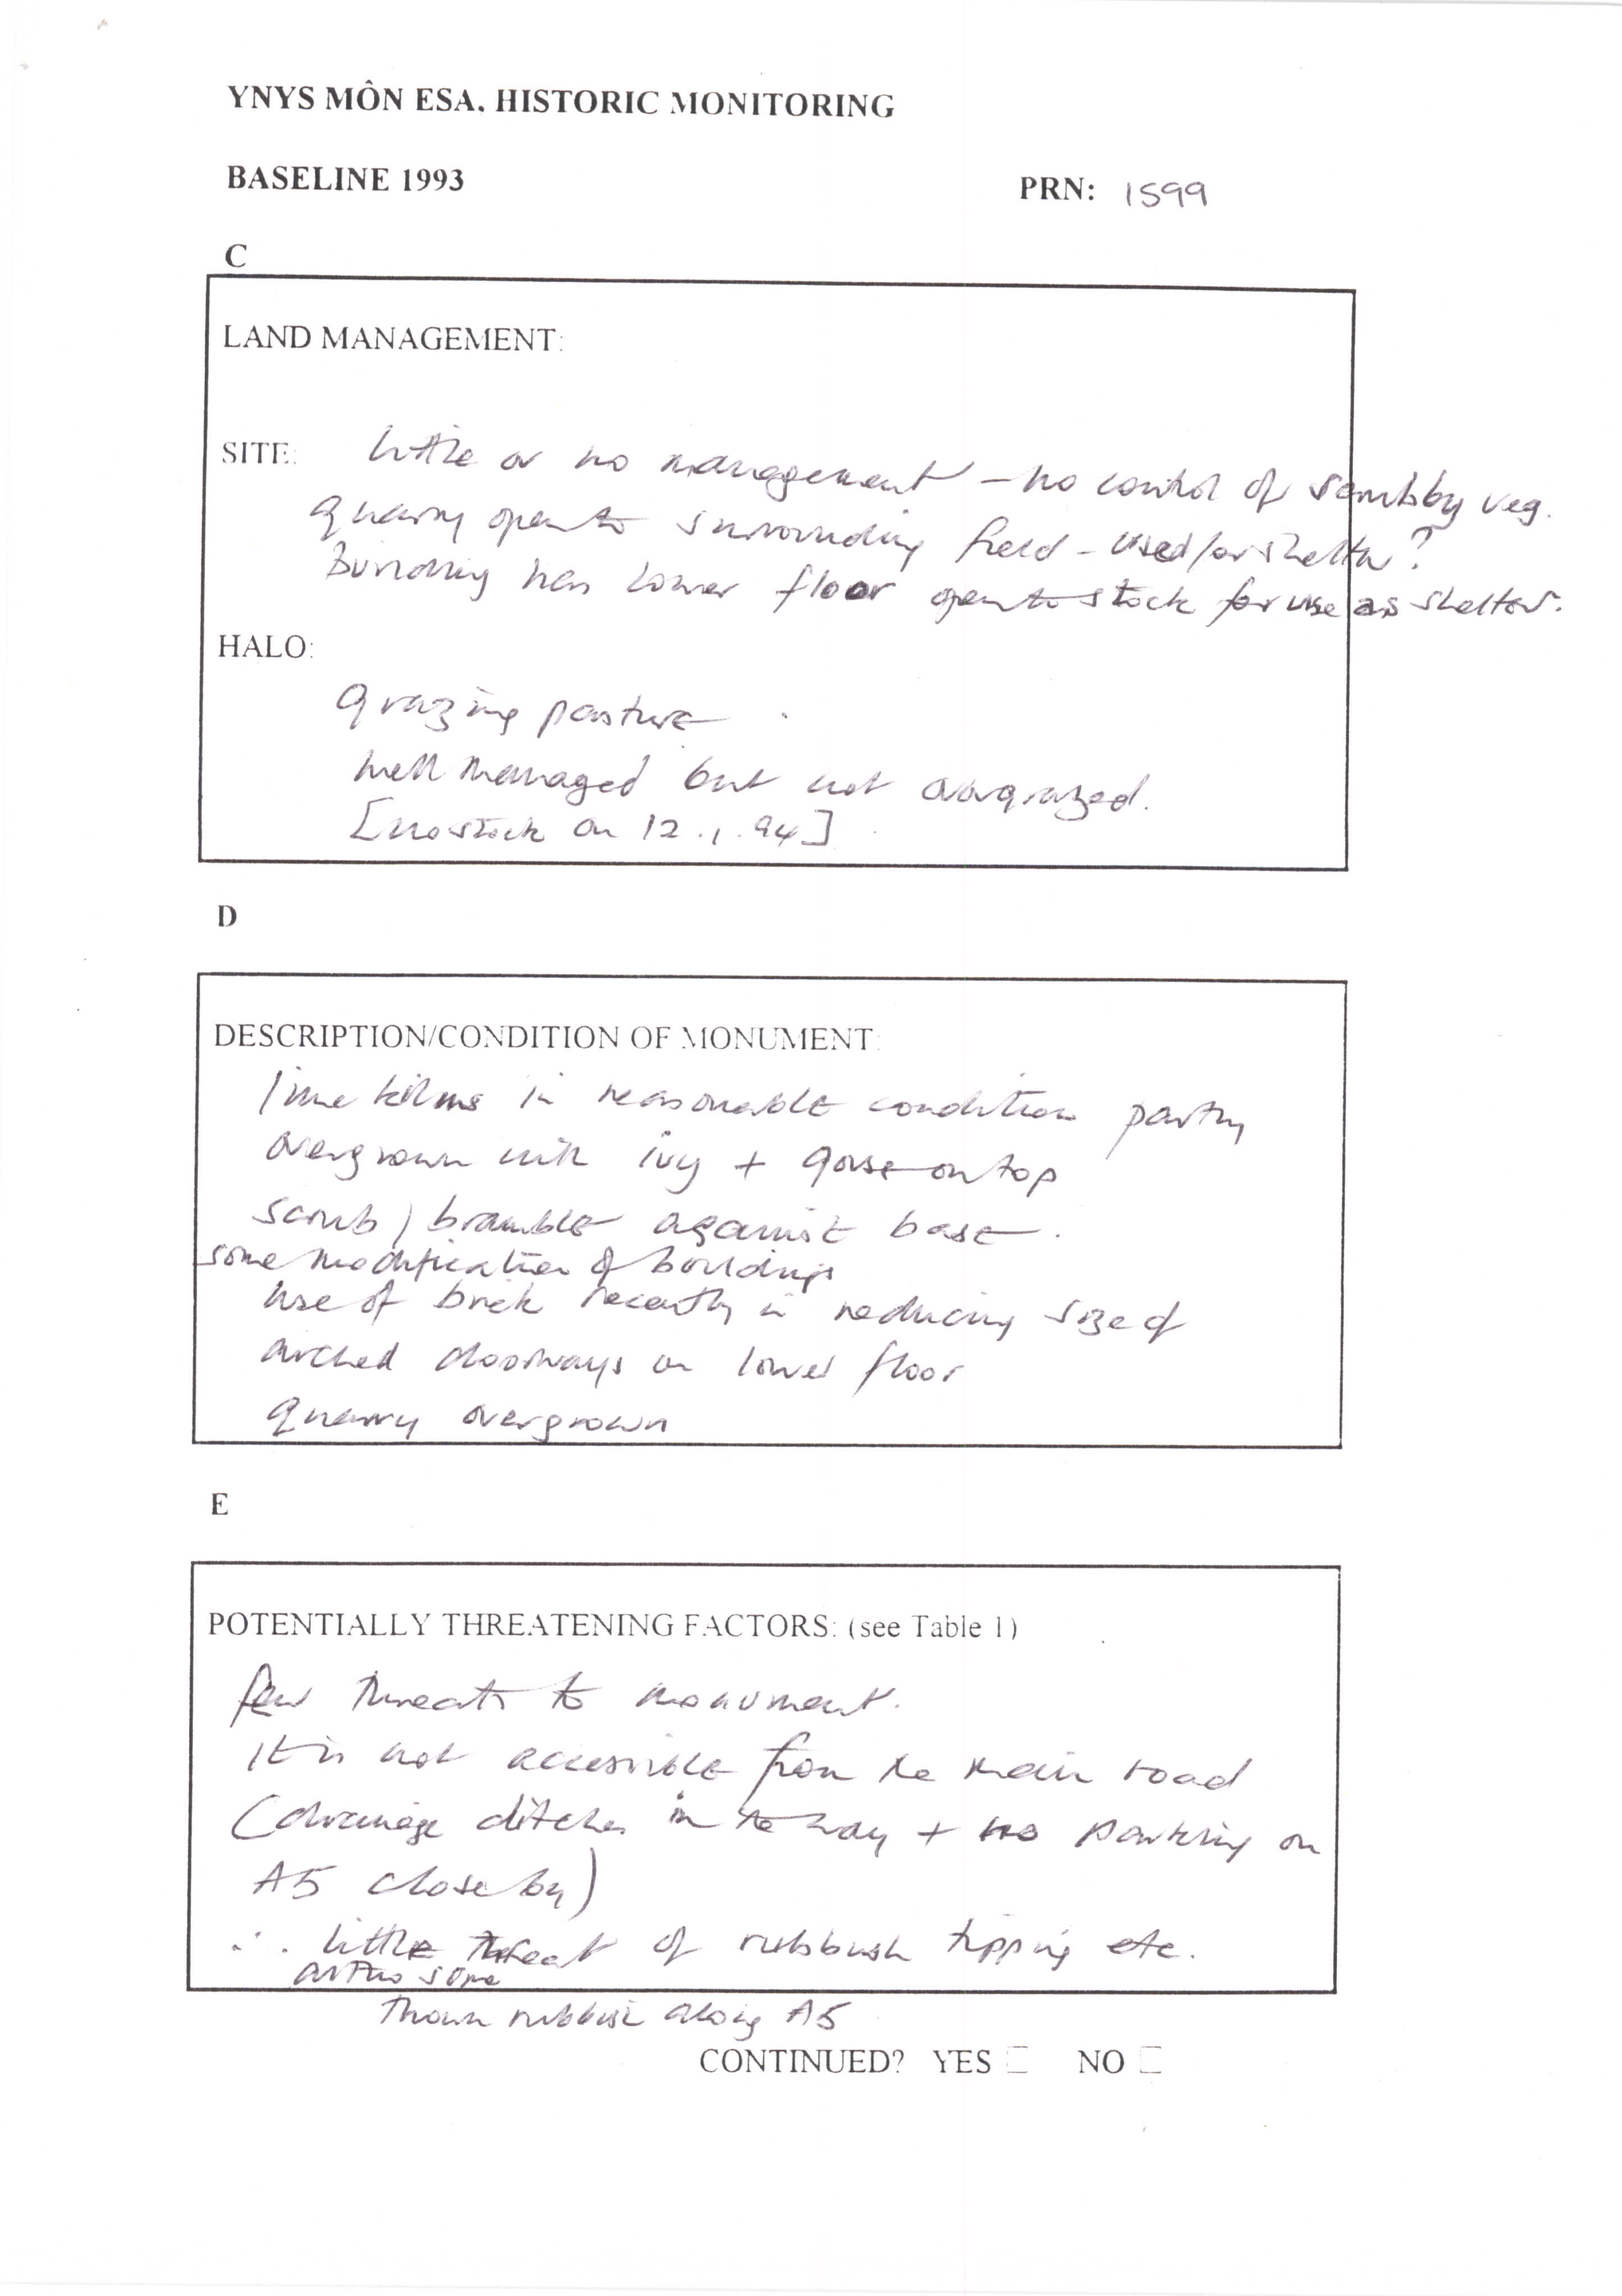 YNYS MÔN ESA. HISTORIC MONITORING
BASELINE 1993
PRN: 1599
C
LAND MANAGEMENT:
SITE: little or no management - no control of scrubby veg.
quarry open to surrounding field - used for shelter?
Building has lower floor open to stock for use as shelter.
HALO:
grazing pasture
well managed but not overgrazed.
[no stock on 12.1.94]
D
DESCRIPTION/CONDITION OF MONUMENT:
lime kilns in reasonable condition partly
overgrown with ivy + gorse on top
scrub / bramble against base.
some modification of buildings
use of brick recently in reducing size of
arched doorways on lower floor
quarry overgrown
E
POTENTIALLY THREATENING FACTORS: (see Table 1)
few threats to monument.
It is not accesible from the main road
(drainage ditches in the way + no parking on
A5 close by)
∴ little threat of rubbush tipping etc.
altho some
thrown rubbish along A5
CONTINUED? YES NO